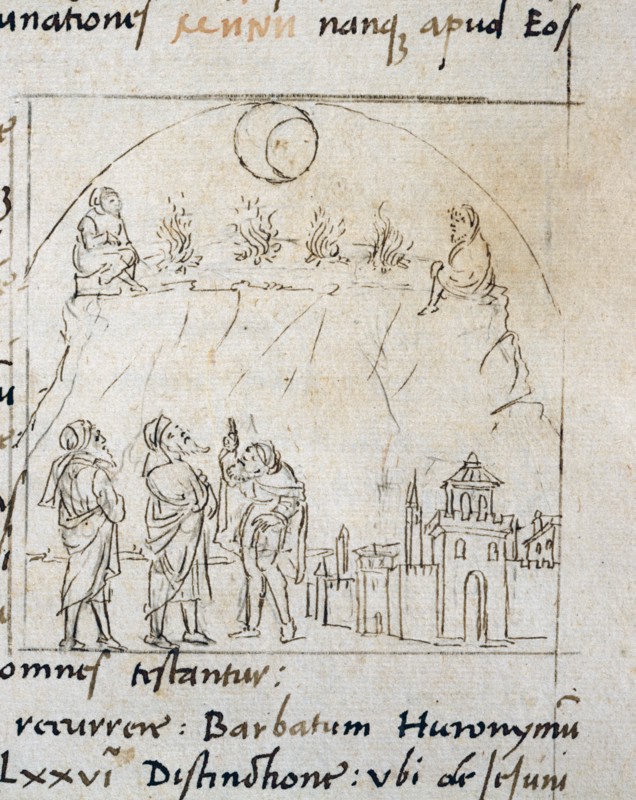 unationes nanqꝫ apud Eos
omnes testantur:
recurrere: Barbatum Hieronymū
Lxxvi Distinctione: vbi de Jejuni